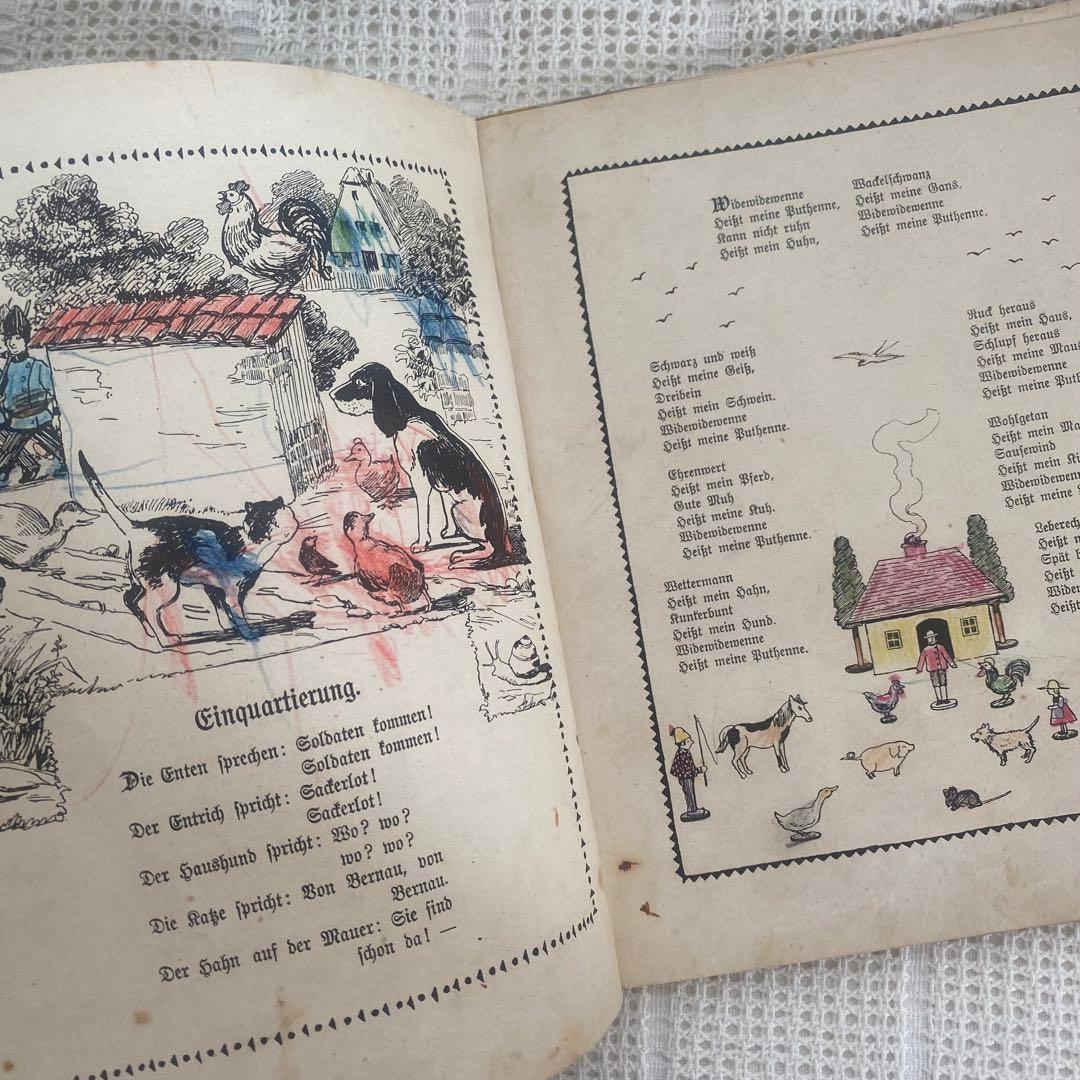 Einquartierung.
Die Enten sprechen: Soldaten kommen!
Soldaten kommen!
Der Entrich spricht: Sackerlot!
Sackerlot!
Der Haushund spricht: Wo? wo?
wo? wo?
Die Katze spricht: Von Bernau, von
Bernau.
Der Hahn auf der Mauer: Sie sind
schon da! —
Widewidewenne
Heißt meine Puthenne,
Kann nicht ruhn
Heißt mein Huhn,
Wackelschwanz
Heißt meine Gans.
Widewidewenne
Heißt meine Puthenne.
Schwarz und weiß
Heißt meine Geiß,
Dreibein
Heißt mein Schwein.
Widewidewenne
Heißt meine Puthenne.
Ehrenwert
Heißt mein Pferd,
Gute Muh
Heißt meine Kuh.
Widewidewenne
Heißt meine Puthenne.
Wettermann
Heißt mein Hahn,
Kunterbunt
Heißt mein Hund.
Widewidewenne
Heißt meine Puthenne.
Ruck heraus
Heißt mein Haus,
Schlupf heraus
Heißt meine Maus
Widewidewenne
Heißt meine
Wohlgetan
Heißt mein
Sausewind
Heißt mein
Widewidewenne
Heißt meine
Heißt
Spät
Heißt
Heißt